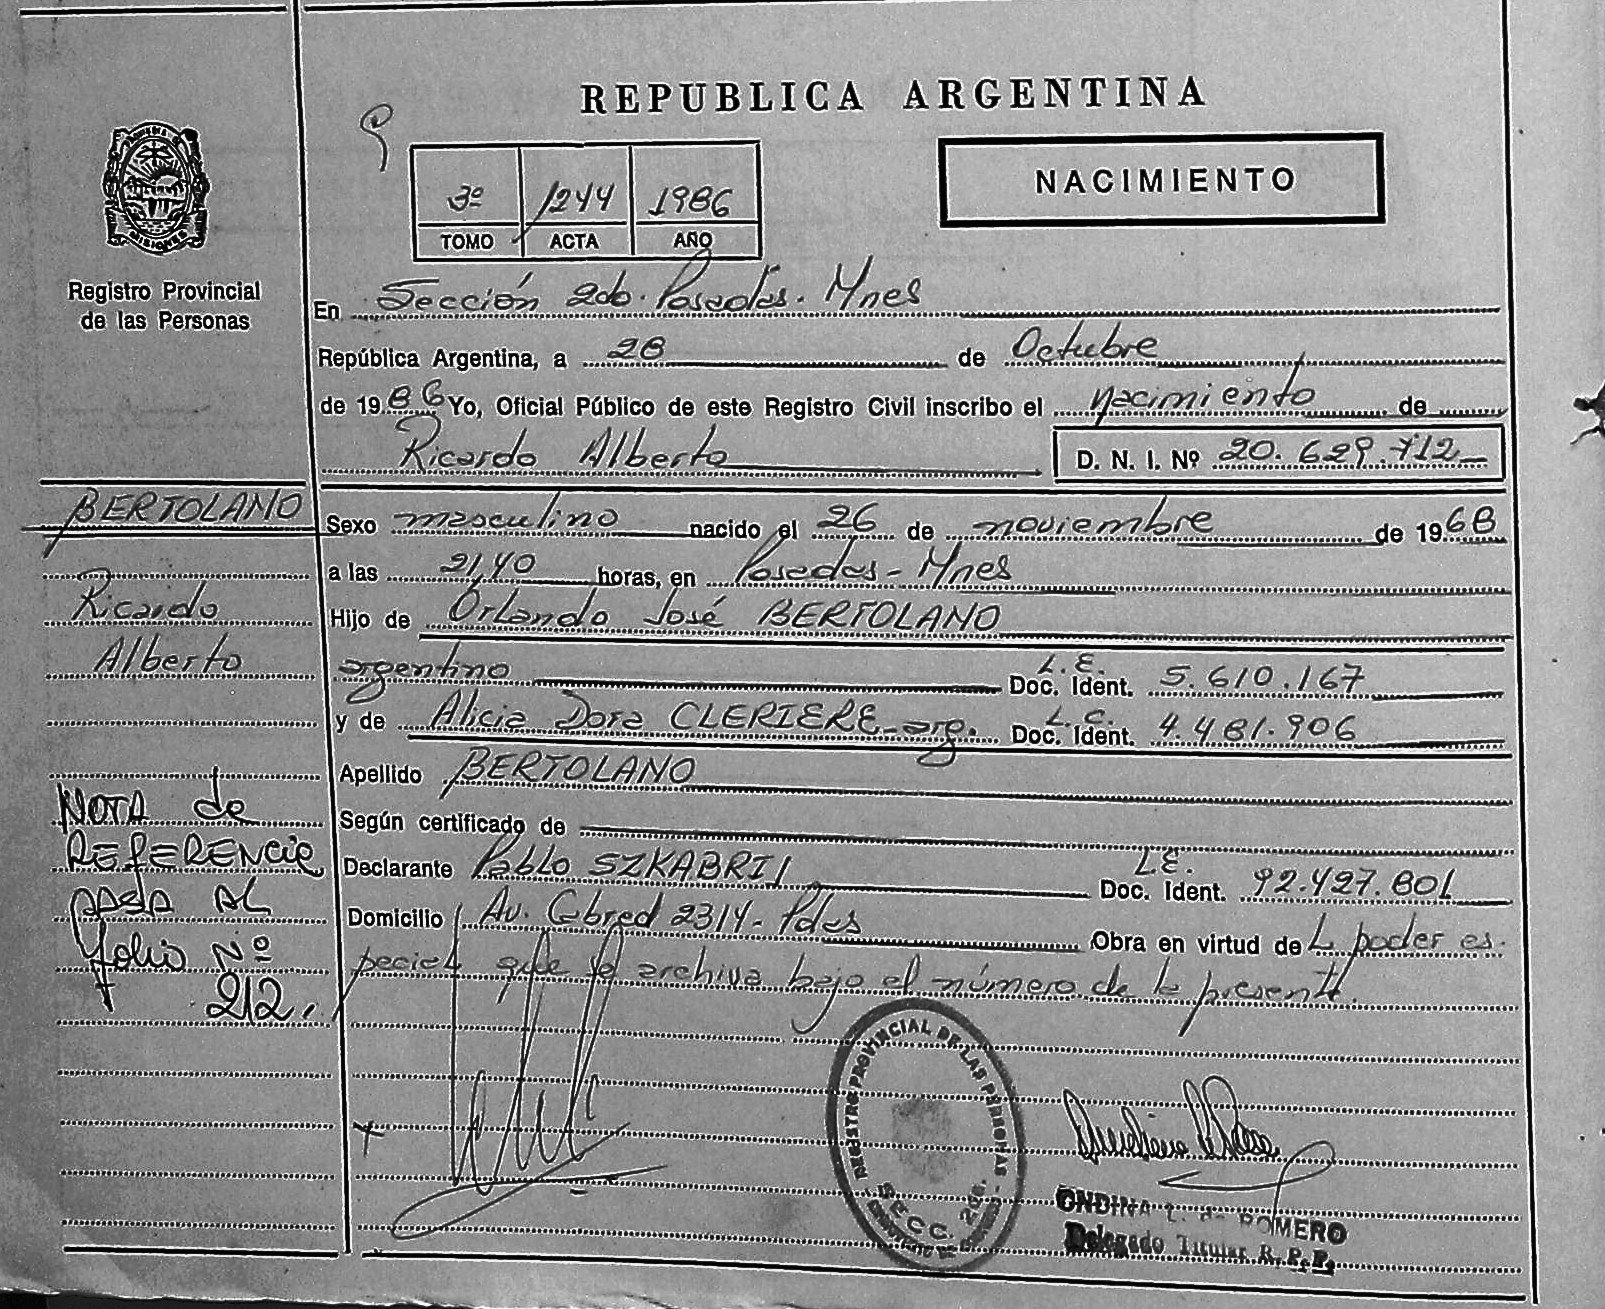 REPUBLICA ARGENTINA
3º 1244 1986
TOMO ACTA AÑO
NACIMIENTO
MISIONES
Registro Provincial
de las Personas
En Sección 2do. Posadas. Mnes
República Argentina, a 28 de Octubre
de 1986 Yo, Oficial Público de este Registro Civil inscribo el nacimiento de
Ricardo Alberto D. N. I. Nº 20.629.712
BERTOLANO
Ricardo
Alberto
Sexo masculino nacido el 26 de noviembre de 1968
a las 21,40 horas, en Posadas - Mnes
Hijo de Orlando José BERTOLANO
argentino L.E. Doc. Ident. 5.610.167
y de Alicia Dora CLERIERE - arg. L.C. Doc. Ident. 4.481.906
Apellido BERTOLANO
Según certificado de
Declarante Pablo SZKABRII L.E. Doc. Ident. 92.427.801
Domicilio Av. Cabred 2314 - Pdas Obra en virtud de L poder es-
pecial que se archiva bajo el número de la presente.
NOTA de
REFERENCIA
PASA AL
folio Nº
212.
REGISTRO PROVINCIAL DE LAS PERSONAS
SECC. 2da.
ONDINA de ROMERO
Delegado Titular R. P. P.